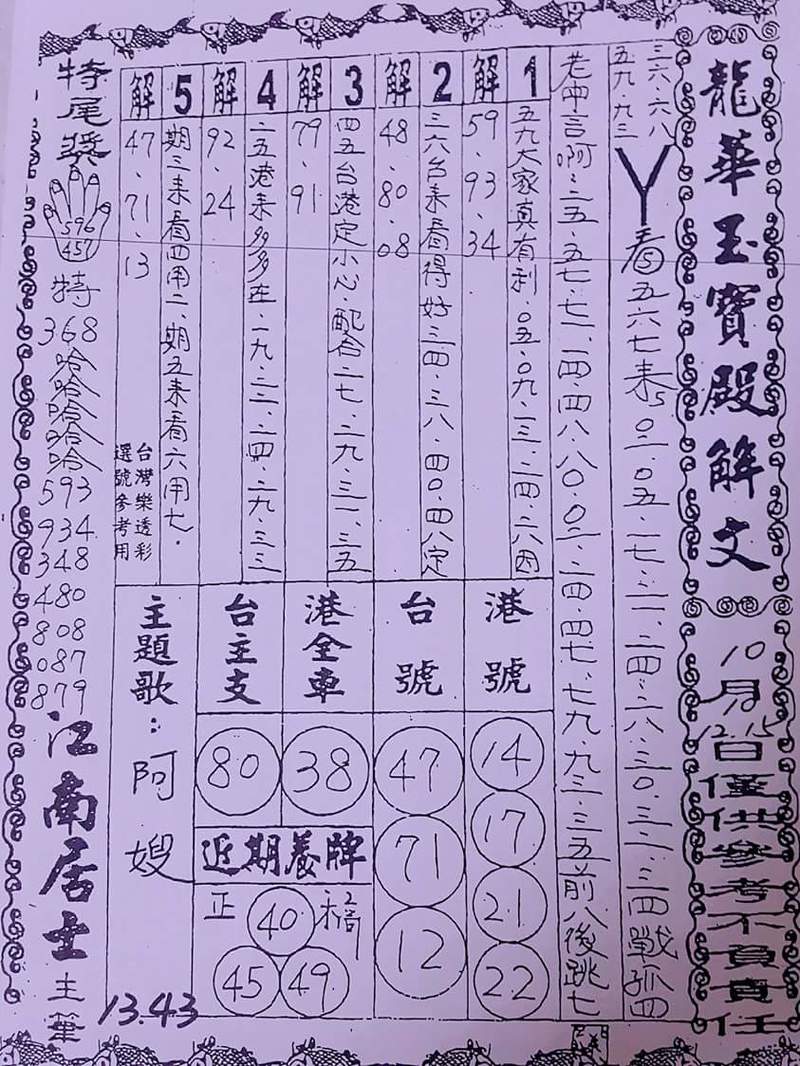 龍華玉寶殿解文
10月12.15日僅供參考不負責任
三六.六八
五九.九三
看5五六七来5.0三.0五.一七.二一.二四.二八.三0.三二.三四戰孤四
老中言啊.二五.五七.七二.二四.四八.八0.0二.二四.四七.七九.九三.三五前八後跳七
1
五九大家真有利.0五.0九.二三.二四.二八因
解
59.93.34
2
三六台来看得好三四.三八.四0.四八定
解
48.80.08
3
四五台港定小心.配合二七.二九.三一.三五
解
79.91
4
二五港来多多在.一九.二二.二四.二九.三三
解
92.24
5
期三来看四用二、期五来看六用七.
解
47.71.13
台灣樂透彩
選號參考用
港號
14
17
21
22
台號
47
71
12
港全車
38
台主支
80
近期養牌
正
40
45
49
主題歌：阿嫂
特尾獎
596
457
特
368
哈哈哈哈哈
593
934
348
480
808
087
879
江南居士主筆
13.43